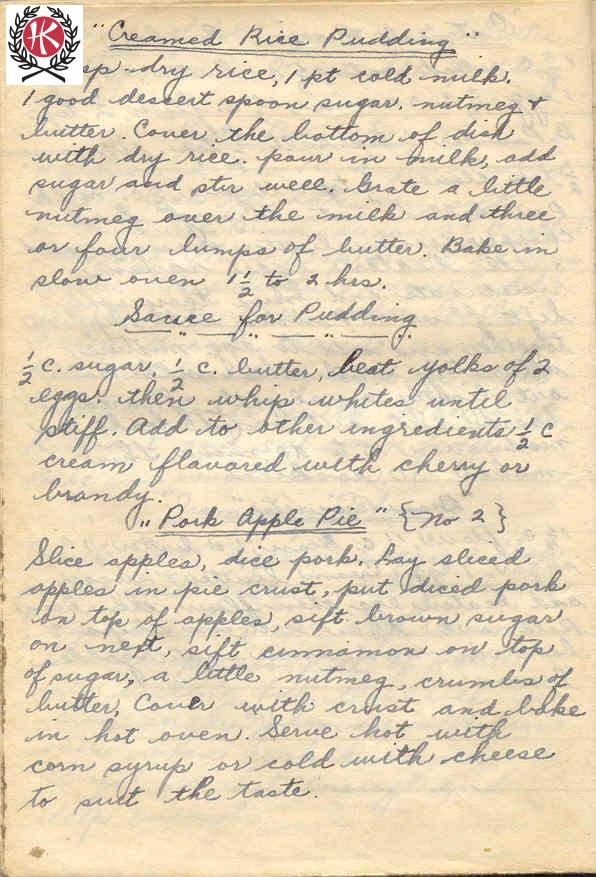 HK
"Creamed Rice Pudding"
sp dry rice, 1 pt cold milk,
1 good dessert spoon sugar, nutmeg &
butter. Cover the bottom of dish
with dry rice. pour in milk, add
sugar and stir well. Grate a little
nutmeg over the milk and three
or four lumps of butter. Bake in
slow oven 1 1/2 to 2 hrs.
Sauce for Pudding
1/2 c. sugar, 1/2 c. butter, beat yolks of 2
eggs, then whip whites until
stiff. Add to other ingredients 1/2 c
cream flavored with cherry or
brandy.
"Pork Apple Pie" {No 2}
Slice apples, dice pork. Lay sliced
apples in pie crust, put diced pork
on top of apples, sift brown sugar
on next, sift cinnamon on top
of sugar, a little nutmeg, crumbs of
butter, Cover with crust and bake
in hot oven. Serve hot with
corn syrup or cold with cheese
to suit the taste.